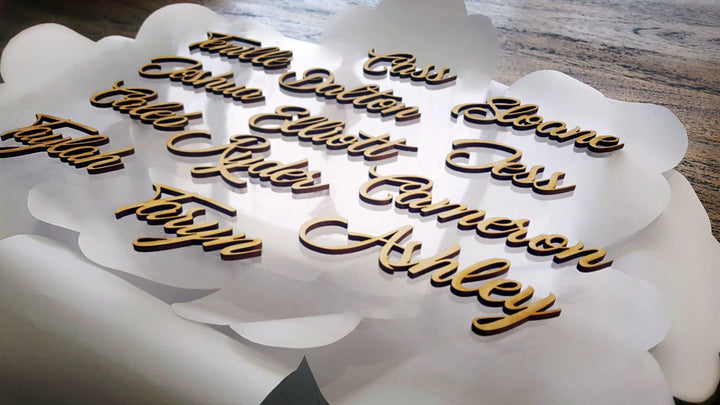 Tenille
Cass
Joshua
Dalton
Sloane
Caleb
Elliott
Jess
Taylah
Ryder
Cameron
Taryn
Ashley